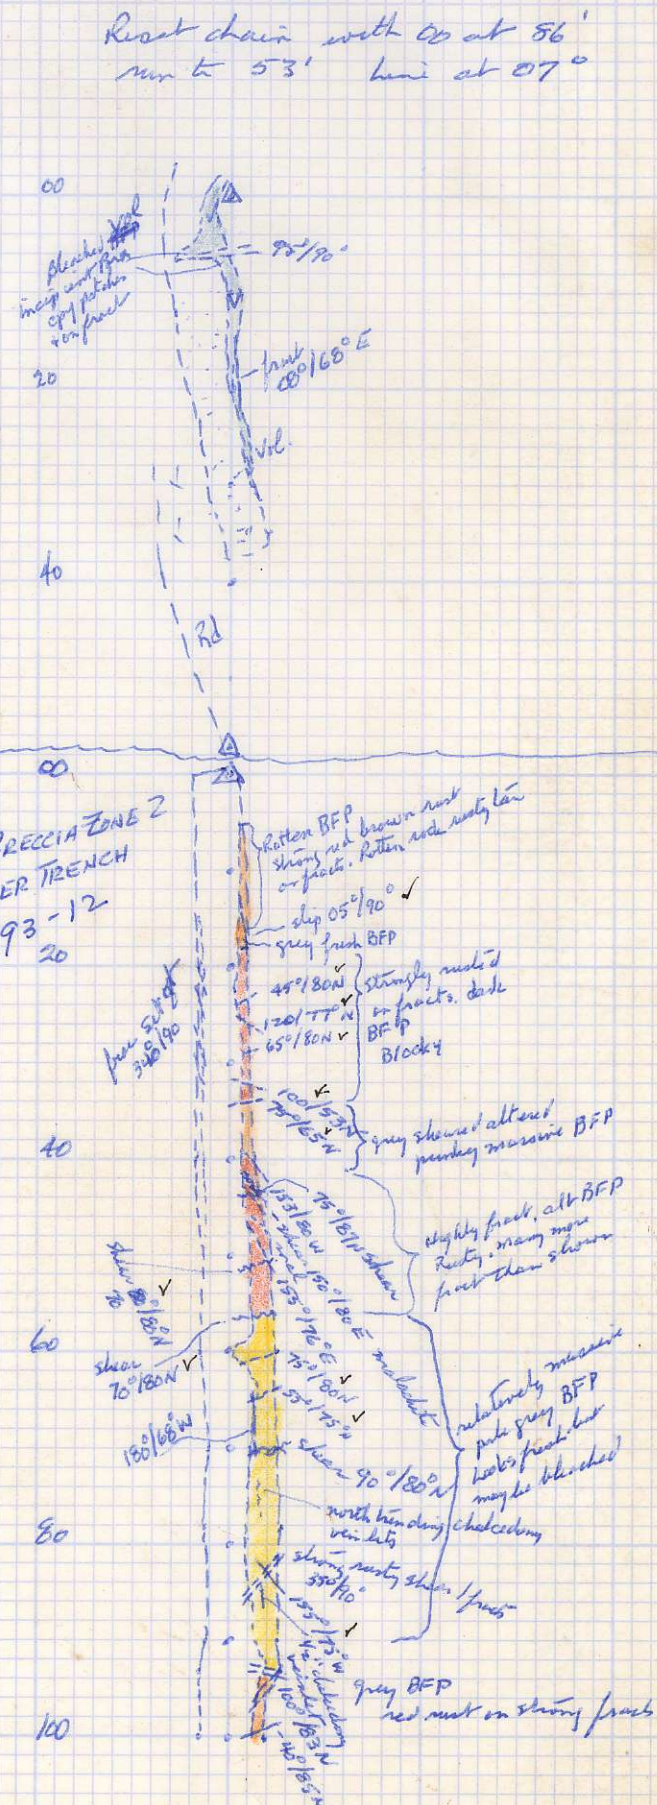 Reset chain with 00 at 86'
run to 53' line at 07°
00
Bleached
incipient
cpy patches
+ on fract
95°/90°
20
fract
08°/68°E
Vol.
40
Rd
00
RECCIA ZONE 2
ER TRENCH
93-12
Rotten BFP
strong red brown rust
on fracts. Rotten rock rusty tan
slip 05°/90° ✓
grey fresh BFP
20
45°/80N ✓
120/77°N ✓
65°/80N ✓
Strongly rusted
on fracts. dark
BFP
Blocky
340/90
100/53N ✓
75°/65N ✓
grey sheared altered
punky massive BFP
40
153/80W
shear
mal
75°/87N shear
150°/80E
155°/76°E
malachite
Highly fract. alt BFP
Rusty. many more
fract than shown
shear 80°/80N ✓
70
60
shear
70°/80N ✓
75°/80N ✓
55°/75N ✓
180°/68W
shear 90°/80°N
relatively massive
pale grey BFP
looks fresh but
maybe bleached
north trending chalcedony
veinlets
80
strong rusty shear / fracts
155°/75°W ✓
1/2" chalcedony
veinlet
100°/83N
40°/85N
grey BFP
red rust on strong fracts
100